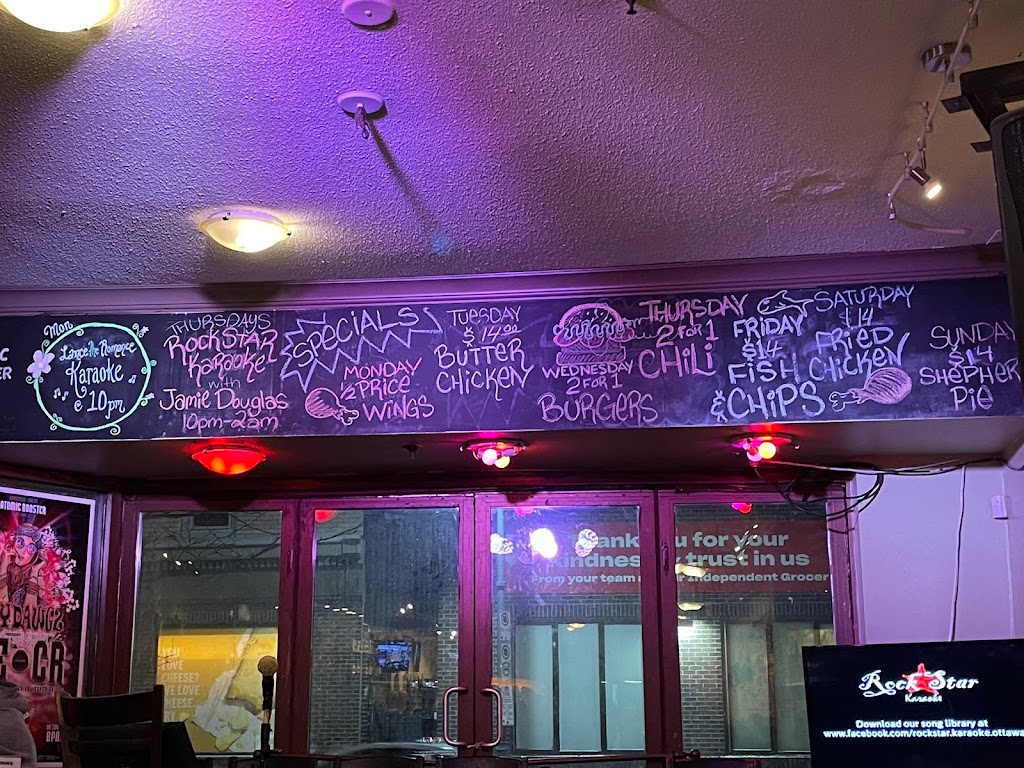 Mon
Lance the Romance
Karaoke
@ 10pm
THURSDAYS
RockSTAR
KaRaoke!
with
Jamie Douglas
10pm-2am
SPECiALS
MONDAY
1/2 PRiCE
WiNGS
TUESDAY
$14.00
BUTTER
CHiCKEN
WEDNESDAY
2 FOR 1
BURGERS
THURSDAY
2 FOR 1
CHiLi
FRiDAY
$14
FiSH
& CHiPS
SATURDAY
$14
FRiED
CHiCKEN
SUNDAY
$14
SHEPHER
PiE
C
ER
ATOMIC ROOSTER
Y DAWGZ
YOU
LOVE
CHEESE?
WE LOVE
CHEESE
Thank you for your
kindness & trust in us
From your team at your Independent Grocer
RockStar
Karaoke
Download our song library at
www.facebook.com/rockstar.karaoke.ottawa